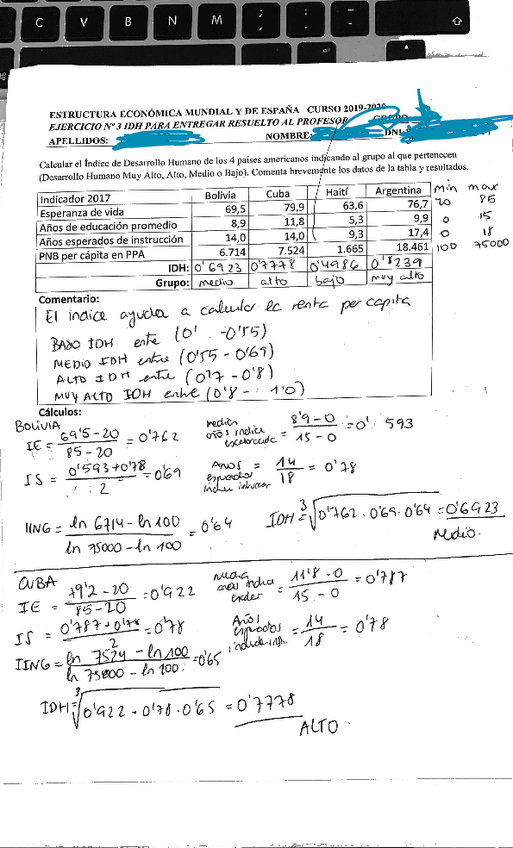 C V B N M ; : , .
ESTRUCTURA ECONÓMICA MUNDIAL Y DE ESPAÑA CURSO 2019-2020
EJERCICIO Nº 3 IDH PARA ENTREGAR RESUELTO AL PROFESOR
APELLIDOS: NOMBRE: DNI:
Calcular el Índice de Desarrollo Humano de los 4 países americanos indicando al grupo al que pertenecen
(Desarrollo Humano Muy Alto, Alto, Medio o Bajo). Comenta brevemente los datos de la tabla y resultados.
Indicador 2017 Bolivia Cuba Haití Argentina Min max
Esperanza de vida 69,5 79,9 63,6 76,7 20 85
Años de educación promedio 8,9 11,8 5,3 9,9 0 15
Años esperados de instrucción 14,0 14,0 9,3 17,4 0 18
PNB per cápita en PPA 6.714 7.524 1.665 18.461 100 75000
IDH: 0'6923 0'7778 0'4986 0'8239
Grupo: medio alto bajo muy alto
Comentario:
El indice ayuda a calcular la renta per capita
BAJO IDH entre (0' -0'55)
MEDIO IDH entre (0'55 - 0'69)
ALTO IDH entre (0'7 - 0'8)
MUY ALTO IDH entre (0'8 - 1'0)
Cálculos:
BOLIVIA
IE = 69'5-20 / 85-20 = 0'762
años indice = 8'9-0 / 15-0 = 0' 593
IS = 0'593+0'78 / 2 = 0'69
Anos = 14 / 18 = 0'78
IING = ln 6714 - ln 100 / ln 75000 - ln 100 = 0'64
IDH = 3√0'762 · 0'69 · 0'64 = 0'6923
Medio.
CUBA
IE = 79'2-20 / 85-20 = 0'922
11'8-0 / 15-0 = 0'787
IS = 0'787+0'78 / 2 = 0'78
Años = 14 / 18 = 0'78
IING = ln 7524 - ln 100 / ln 75000 - ln 100 = 0'65
IDH = 3√0'922 · 0'78 · 0'65 = 0'7778
ALTO.